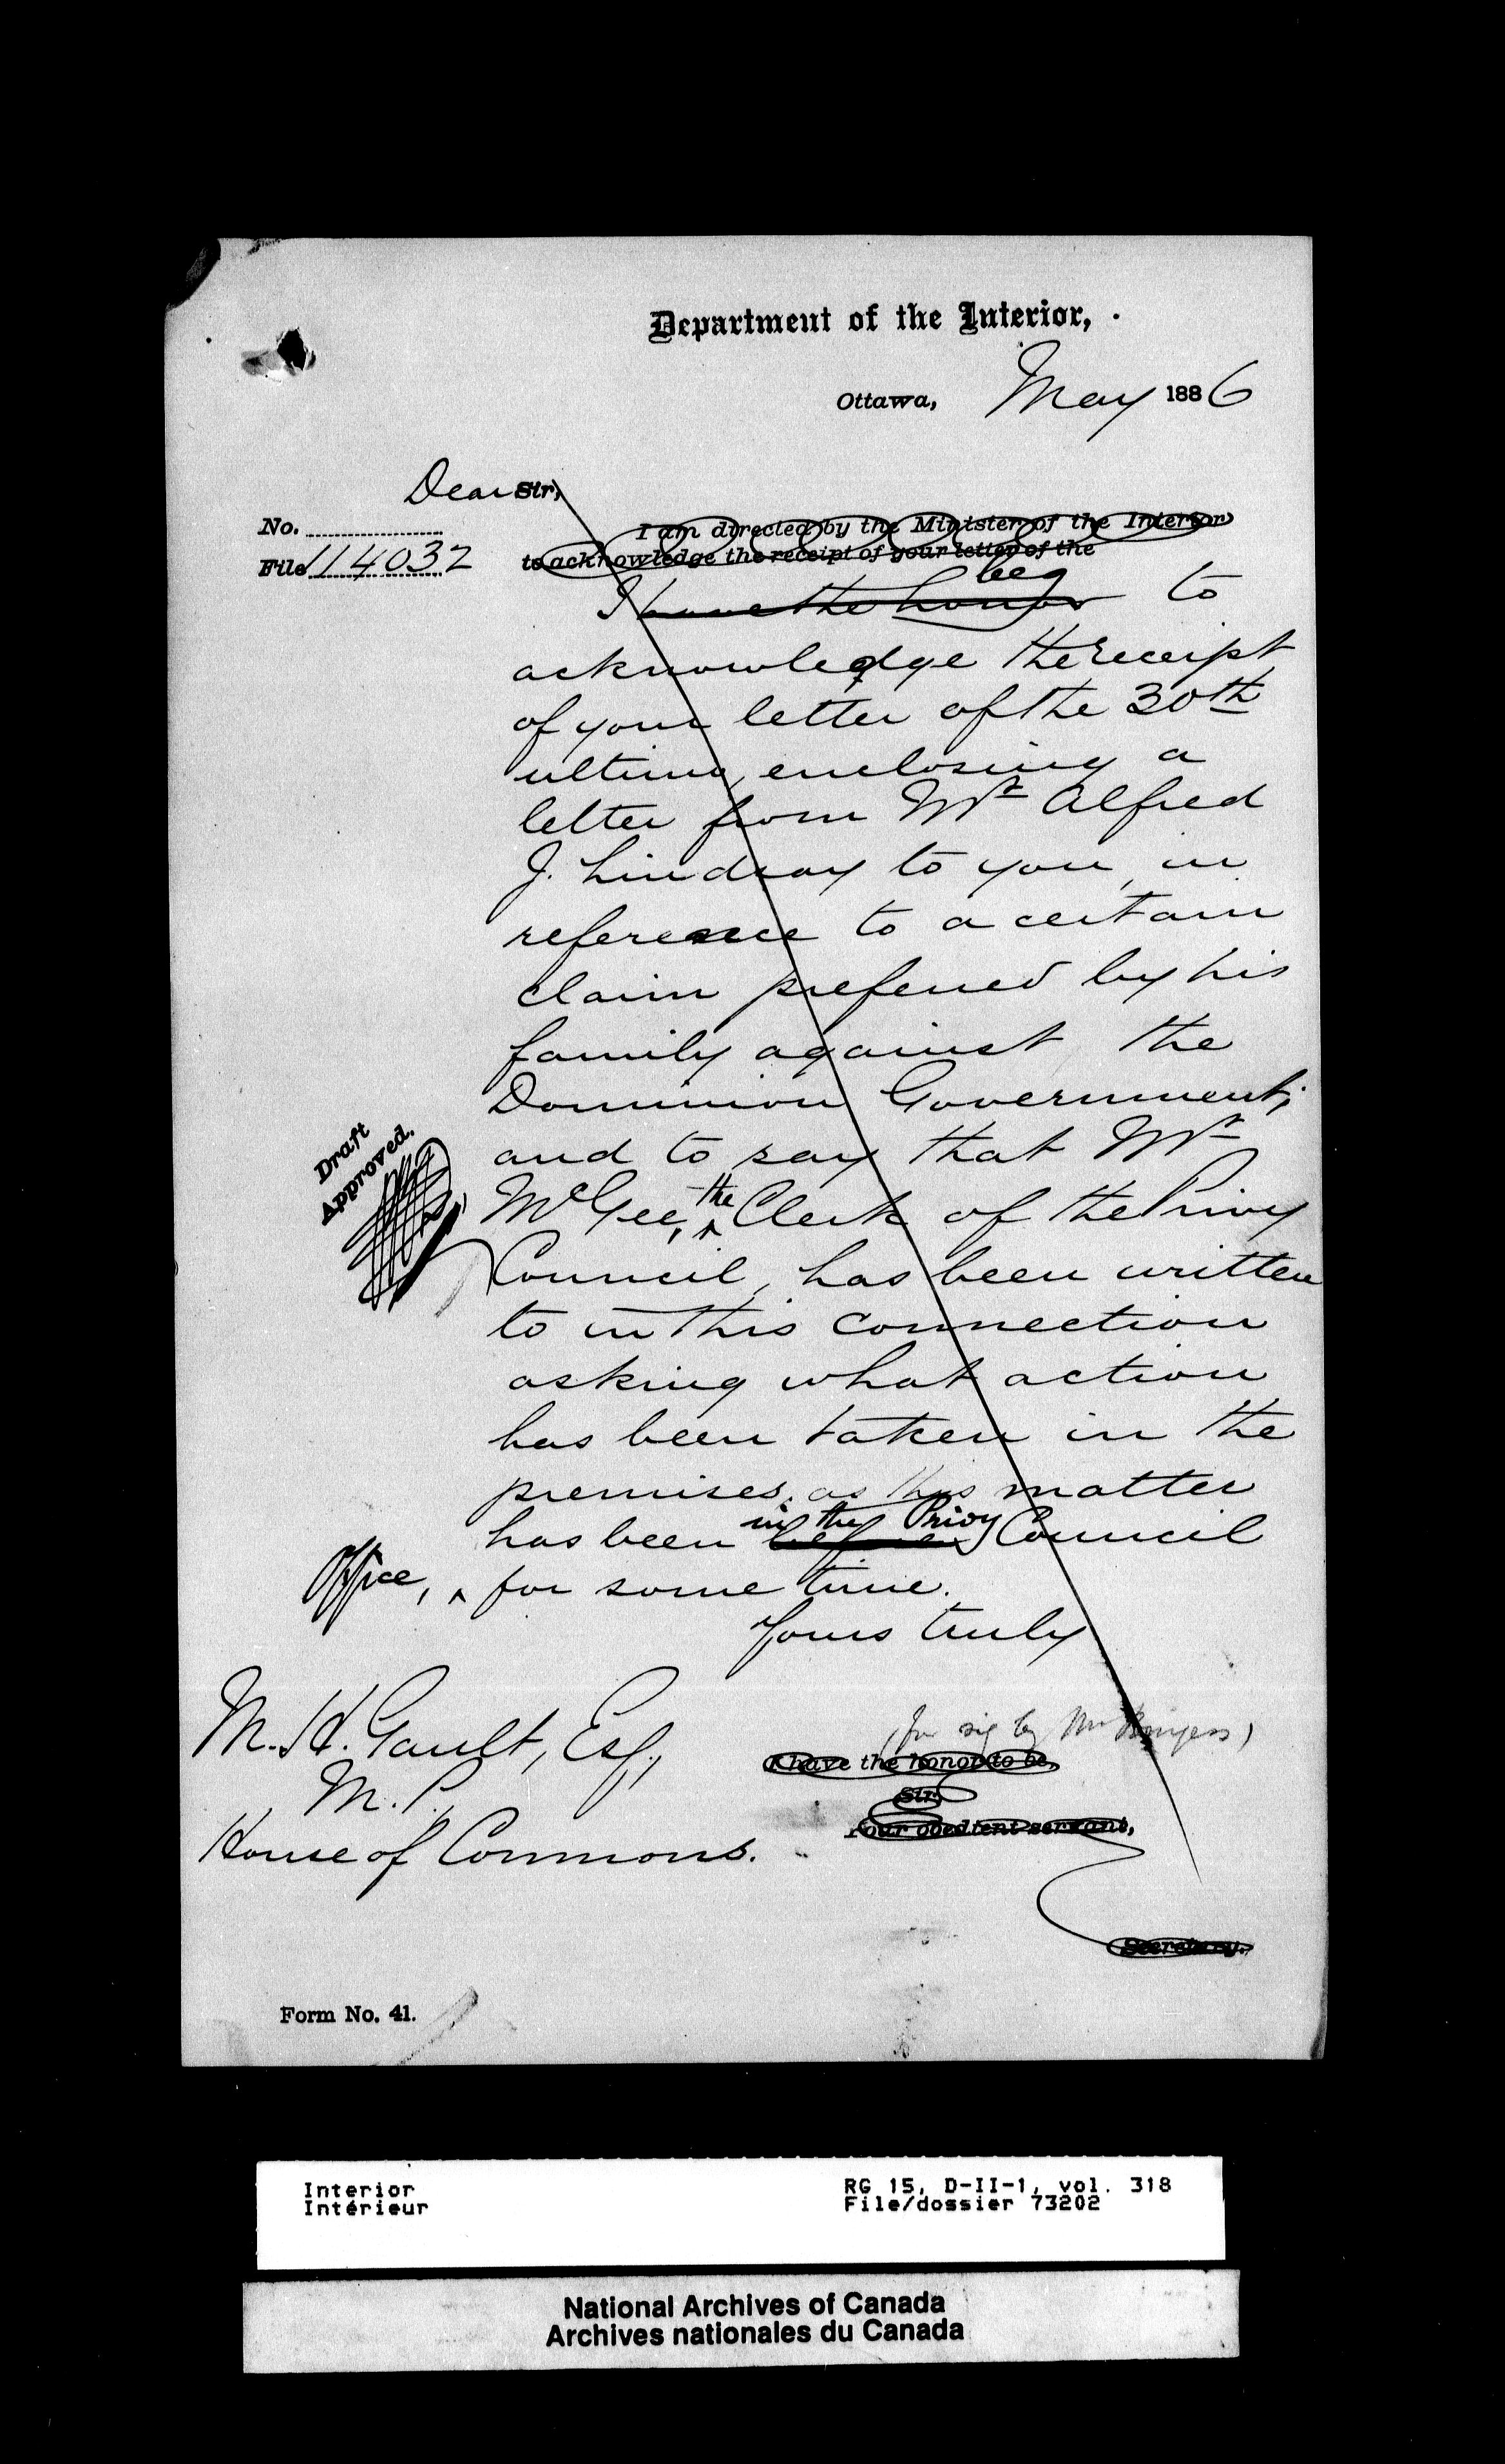 Department of the Interior,
Ottawa, May 1886
Dear Sir,
No.
File 114032
I am directed by the Minister of the Interior
to acknowledge the receipt of your letter of the
beg
I have the honor to
acknowledge the receipt
of your letter of the 30th
ultimo, enclosing a
letter from Mr Alfred
J. Lindsay to you, in
reference to a certain
claim preferred by his
family against the
Dominion Government;
and to say that Mr
McGee, the Clerk of the Privy
Council, has been written
to in this connection
asking what action
has been taken in the
premises, as this matter
in the Privy
has been before Council
Office, for some time.
Yours truly
Draft
Approved.
(for sig by Mr Burgess)
M. H. Gault, Esq,
M.P.
House of Commons.
I have the honor to be,
Sir,
Your obedient servant,
Secretary.
Form No. 41.
Interior
Intérieur
RG 15, D-II-1, vol. 318
File/dossier 73202
National Archives of Canada
Archives nationales du Canada